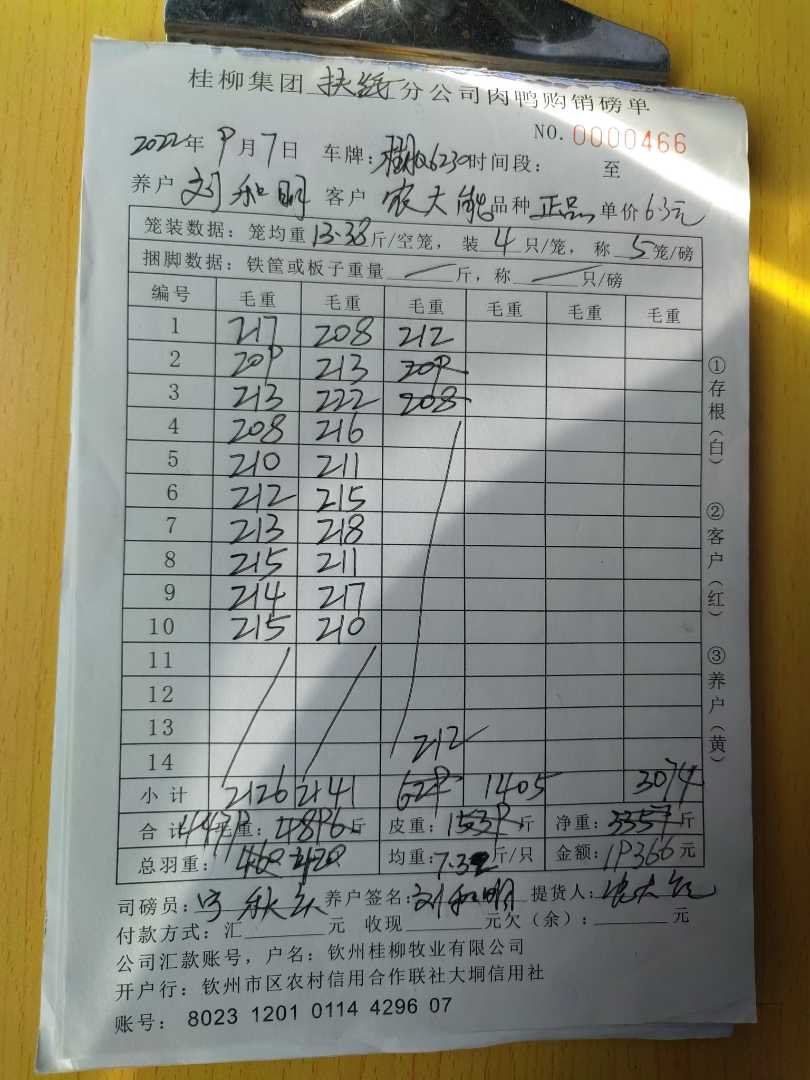 桂柳集团扶绥分公司肉鸭购销磅单
NO. 0000466
2022年9月7日 车牌: Q6230 时间段: 至
养户 刘和明 客户 农大能 品种 正品 单价 6.3元
笼装数据: 笼均重13.38斤/空笼, 装4只/笼, 称5笼/磅
捆脚数据: 铁筐或板子重量 斤, 称 只/磅
编号 毛重 毛重 毛重 毛重 毛重 毛重
1 217 208 212
2 209 213 209
3 213 222 208
4 208 216
5 210 211
6 212 215
7 213 218
8 215 211
9 214 217
10 215 210
11
12
13
14 212
小计 2126 2141 629 1405 3074
合计 毛重: 4896斤 皮重: 1539斤 净重: 3357斤
总羽重: 460 均重: 7.3 斤/只 金额: 19366元
司磅员: 养户签名: 刘和明 提货人:
付款方式: 汇 元 收现 元欠(余): 元
公司汇款账号, 户名: 钦州桂柳牧业有限公司
开户行: 钦州市区农村信用合作联社大垌信用社
账号: 8023 1201 0114 4296 07
①存根(白) ②客户(红) ③养户(黄)